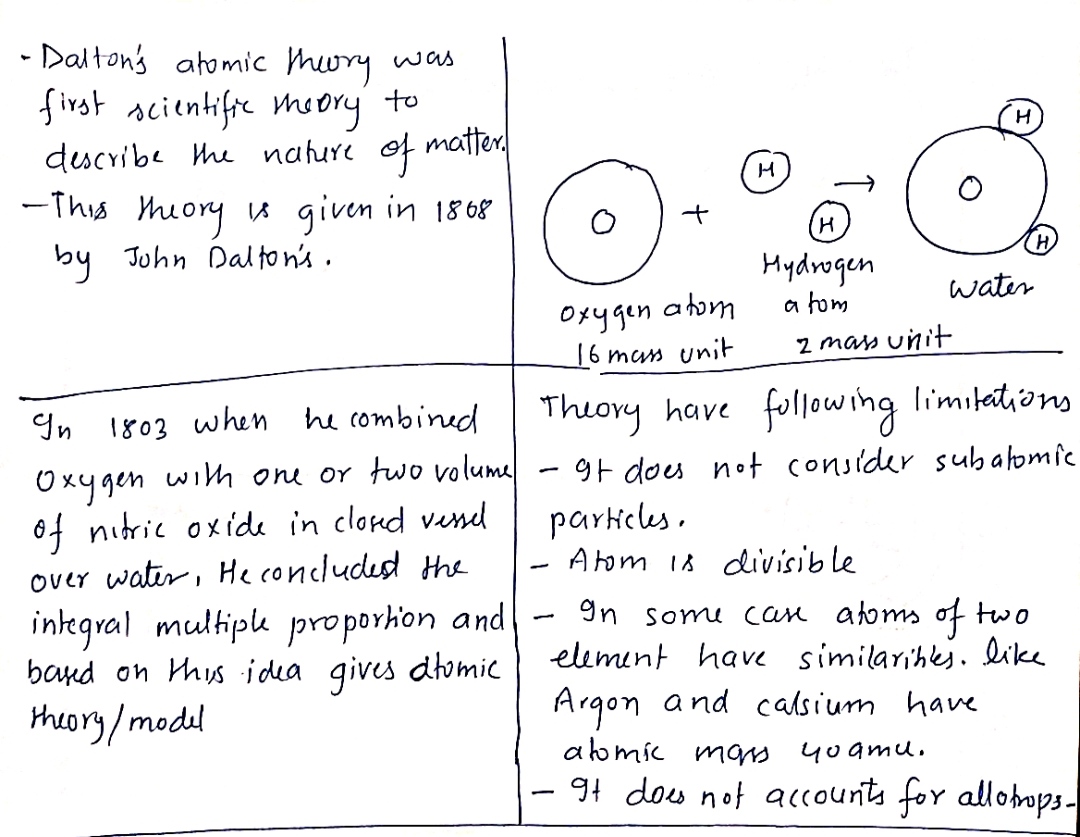 - Dalton's atomic theory was
first scientific theory to
describe the nature of matter.
- This theory is given in 1808
by John Dalton's.
O
+
H
H
→
O
H
H
Hydrogen
atom
2 mass unit
oxygen atom
16 mass unit
water
In 1803 when he combined
Oxygen with one or two volume
of nitric oxide in closed vessel
over water, He concluded the
integral multiple proportion and
based on this idea gives atomic
theory/model
Theory have following limitations
- It does not consider subatomic
particles.
- Atom is divisible
- In some case atoms of two
element have similarities. like
Argon and calsium have
atomic mass 40 amu.
- It does not accounts for allotrops-